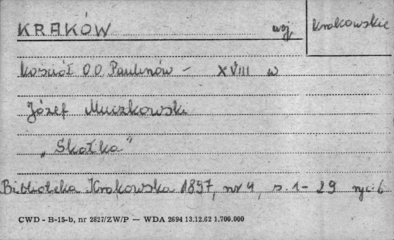 KRAKÓW woj. Krakowskie
Kościół O.O. Paulinów – XVIII w
Józef Muczkowski
„Skałka"
Biblioteka Krakowska 1897, nr 4, s. 1-29 ryc. 6
CWD - B-15-b, nr 2827/ZW/P — WDA 2694 13.12.62 1.700.000